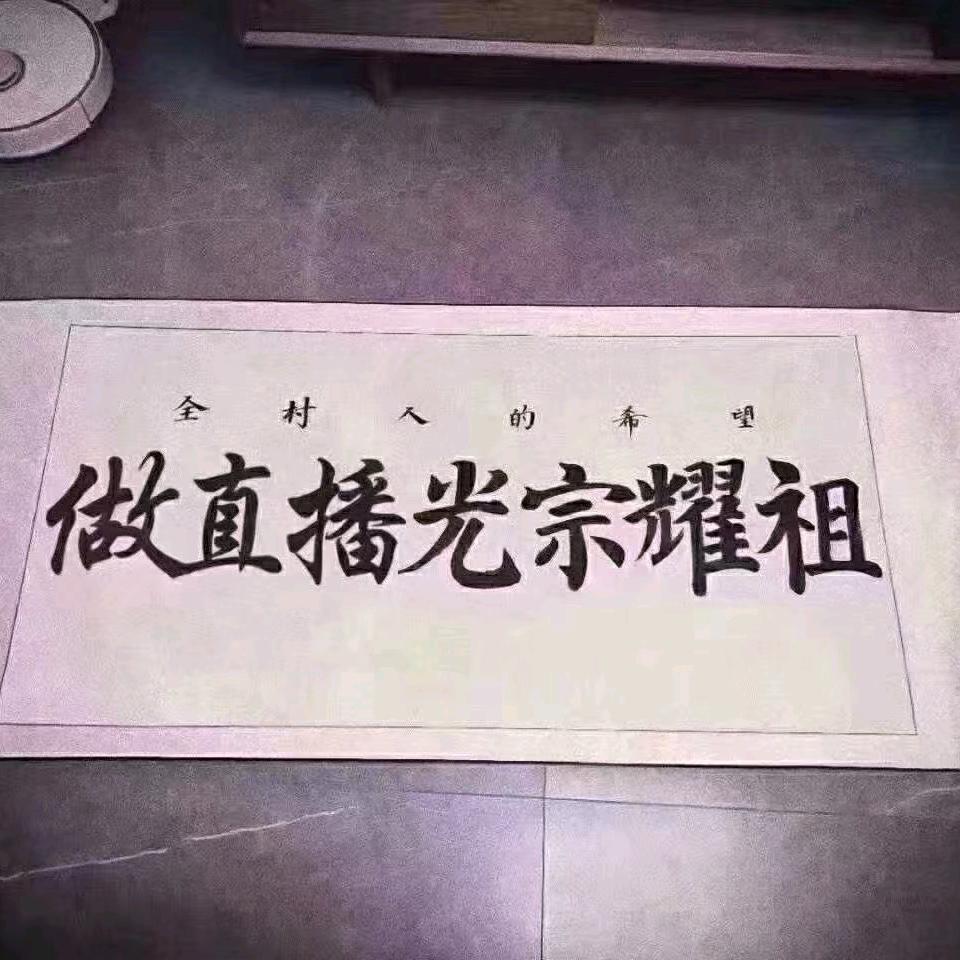 全村人的希望
做直播光宗耀祖